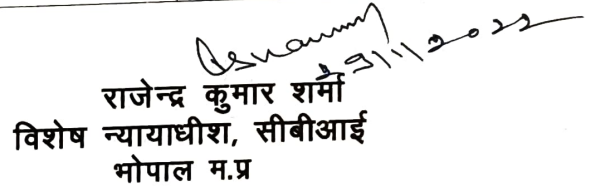 29/11/2022
राजेन्द्र कुमार शर्मा
विशेष न्यायाधीश, सीबीआई
भोपाल म.प्र